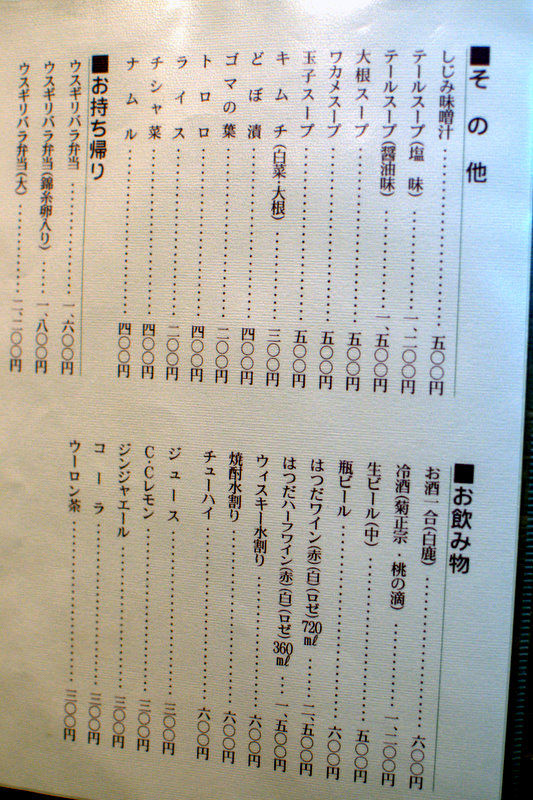 ■その他
しじみ味噌汁………五〇〇円
テールスープ(塩 味)………一、二〇〇円
テールスープ(醤油味)………一、五〇〇円
大根スープ………五〇〇円
ワカメスープ………五〇〇円
玉子スープ………五〇〇円
キムチ(白菜・大根)………三〇〇円
どぼ漬………四〇〇円
ゴマの葉………二〇〇円
トロロ………四〇〇円
ライス………二〇〇円
チシャ菜………四〇〇円
ナムル………四〇〇円
■お持ち帰り
ウスギリバラ弁当………一、六〇〇円
ウスギリバラ弁当(錦糸卵入り)……一、八〇〇円
ウスギリバラ弁当(大)………二、二〇〇円
■お飲み物
お酒一合(白鹿)………六〇〇円
冷酒(菊正宗・桃の滴)………一、二〇〇円
生ビール(中)………五〇〇円
瓶ビール………六〇〇円
はつだワイン(赤)(白)(ロゼ)720㎖……二、五〇〇円
はつだハーフワイン(赤)(白)(ロゼ)360㎖…一、五〇〇円
ウィスキー水割り………六〇〇円
焼酎水割り………六〇〇円
チューハイ………六〇〇円
ジュース………三〇〇円
C・Cレモン………三〇〇円
ジンジャエール………三〇〇円
コーラ………三〇〇円
ウーロン茶………三〇〇円